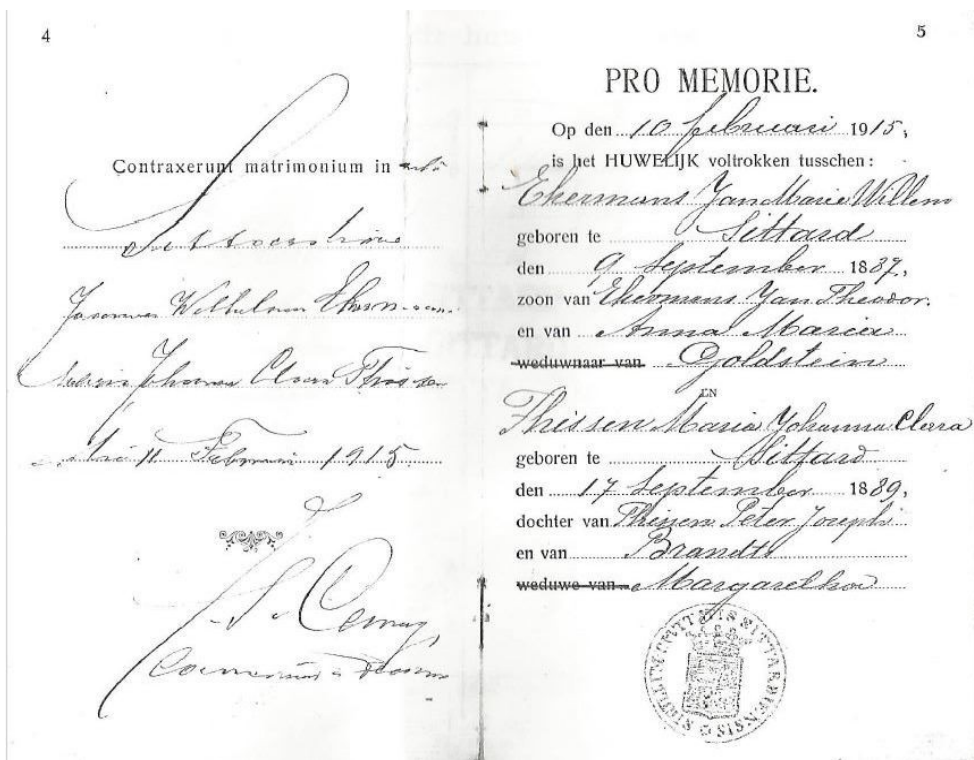 4
Contraxerunt matrimonium in
Wilhelmus
Johanna Clara
11 Februari 1915
5
PRO MEMORIE.
Op den 10 februari 1915,
is het HUWELIJK voltrokken tusschen:
Ekermans Jan Marie Willem
geboren te Sittard
den 9 September 1887,
zoon van Ekermans Jan Theodor.
en van Anna Maria
weduwnaar van Goldstein
EN
Thissen Maria Johanna Clara
geboren te Sittard
den 17 September 1889,
dochter van Thissen Peter Joseph
en van Brandts
weduwe van Margaretha
SIGILLUM CIVITATIS SITTARDIENSIS